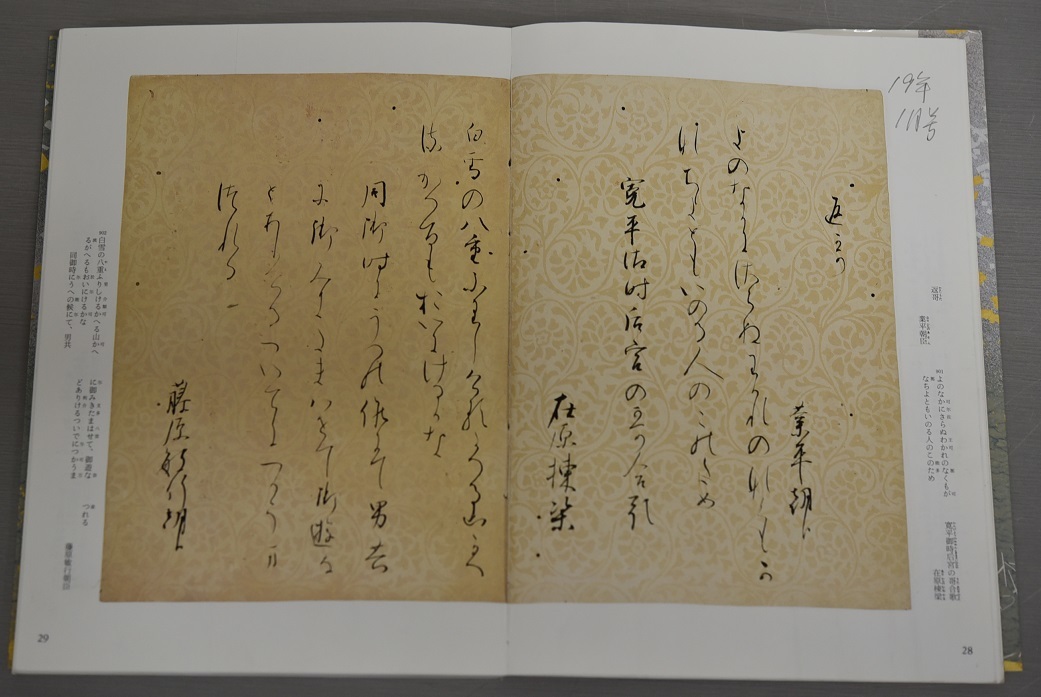 19年
返哥
業平朝臣
よのなかにさらぬわかれのなくもか
なちよともいのる人のこのため
寛平御時后宮の哥合歌
在原棟梁
白雪の八重ふりしけるかへる山かへ
るかへるもおいにけるかな
同御時にうへの候にて男共
に御みきたまはせて御遊な
とありけるついてにつかうま
つれる
藤原敏行朝臣
返哥
業平朝臣
901 よのなかにさらぬわかれのなくもが
なちよともいのる人のこのため
寛平御時后宮の哥合歌
在原棟梁
28
902 白雪の八重ふりしけるかへる山かへ
るがへるもおいにけるかな
同御時にうへの候にて、男共
に御みきたまはせて、御遊な
どありけるついでにつかうま
つれる
藤原敏行朝臣
29